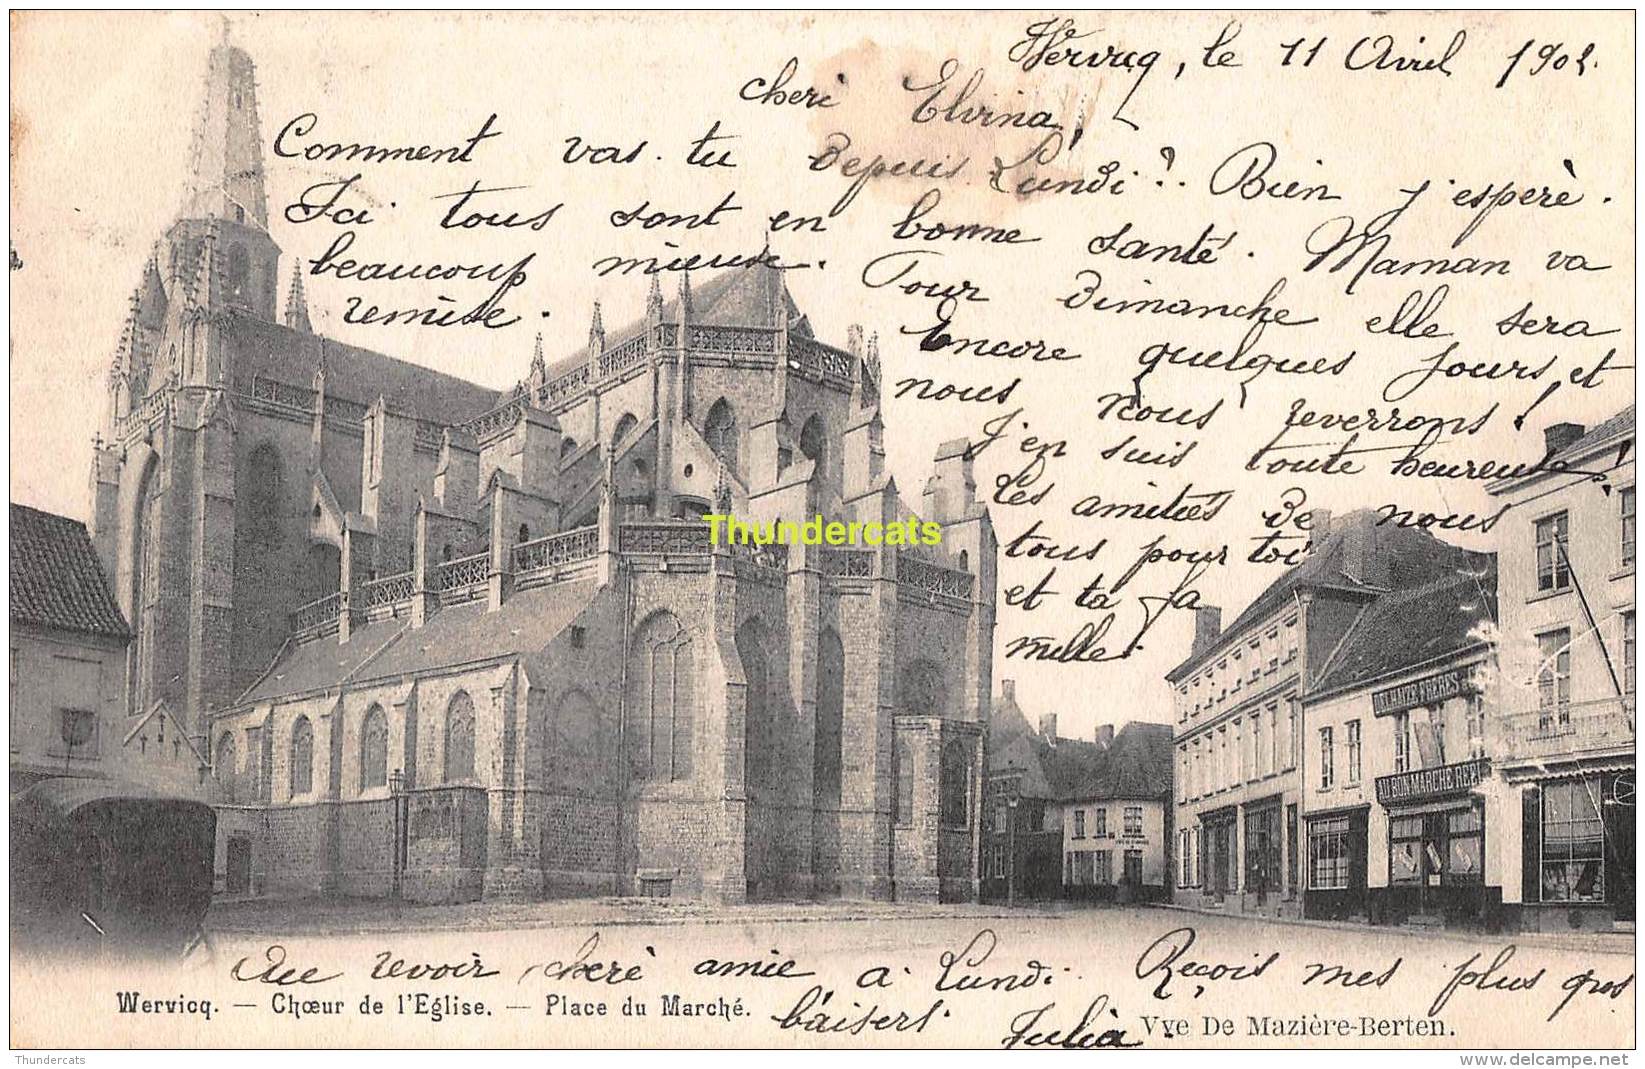 Wervicq, le 11 Avril 190
cheri Elvina,
Comment vas-tu depuis Lundi? Bien j'espère.
Ici tous sont en bonne santé. Maman va
beaucoup mieuse. Pour Dimanche elle sera
remise. Encore quelques jours, et
nous nous reverrons!
J'en suis toute heureuse!
Les amitiés de nous
tous pour toi
et ta fa
mille.
Thundercats
DELHAIZE FRERES
AU BON MARCHE REEL
Au revoir cheré amie a Lundi. Reçois mes plus gros
baisers. Julia.
Wervicq. — Chœur de l'Eglise. — Place du Marché.
Vve De Mazière-Berten.
Thundercats
www.delcampe.net